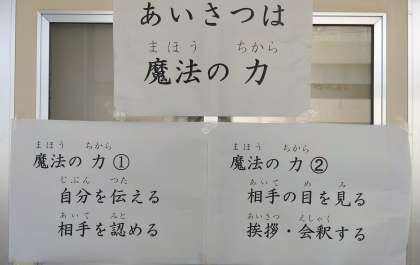 あいさつは
まほう ちから
魔法の 力
まほう ちから
魔法の 力 ①
じぶん つた
自分を伝える
あいて みと
相手を認める
まほう ちから
魔法の 力 ②
あいて め み
相手の目を見る
あいさつ えしゃく
挨拶・会釈する